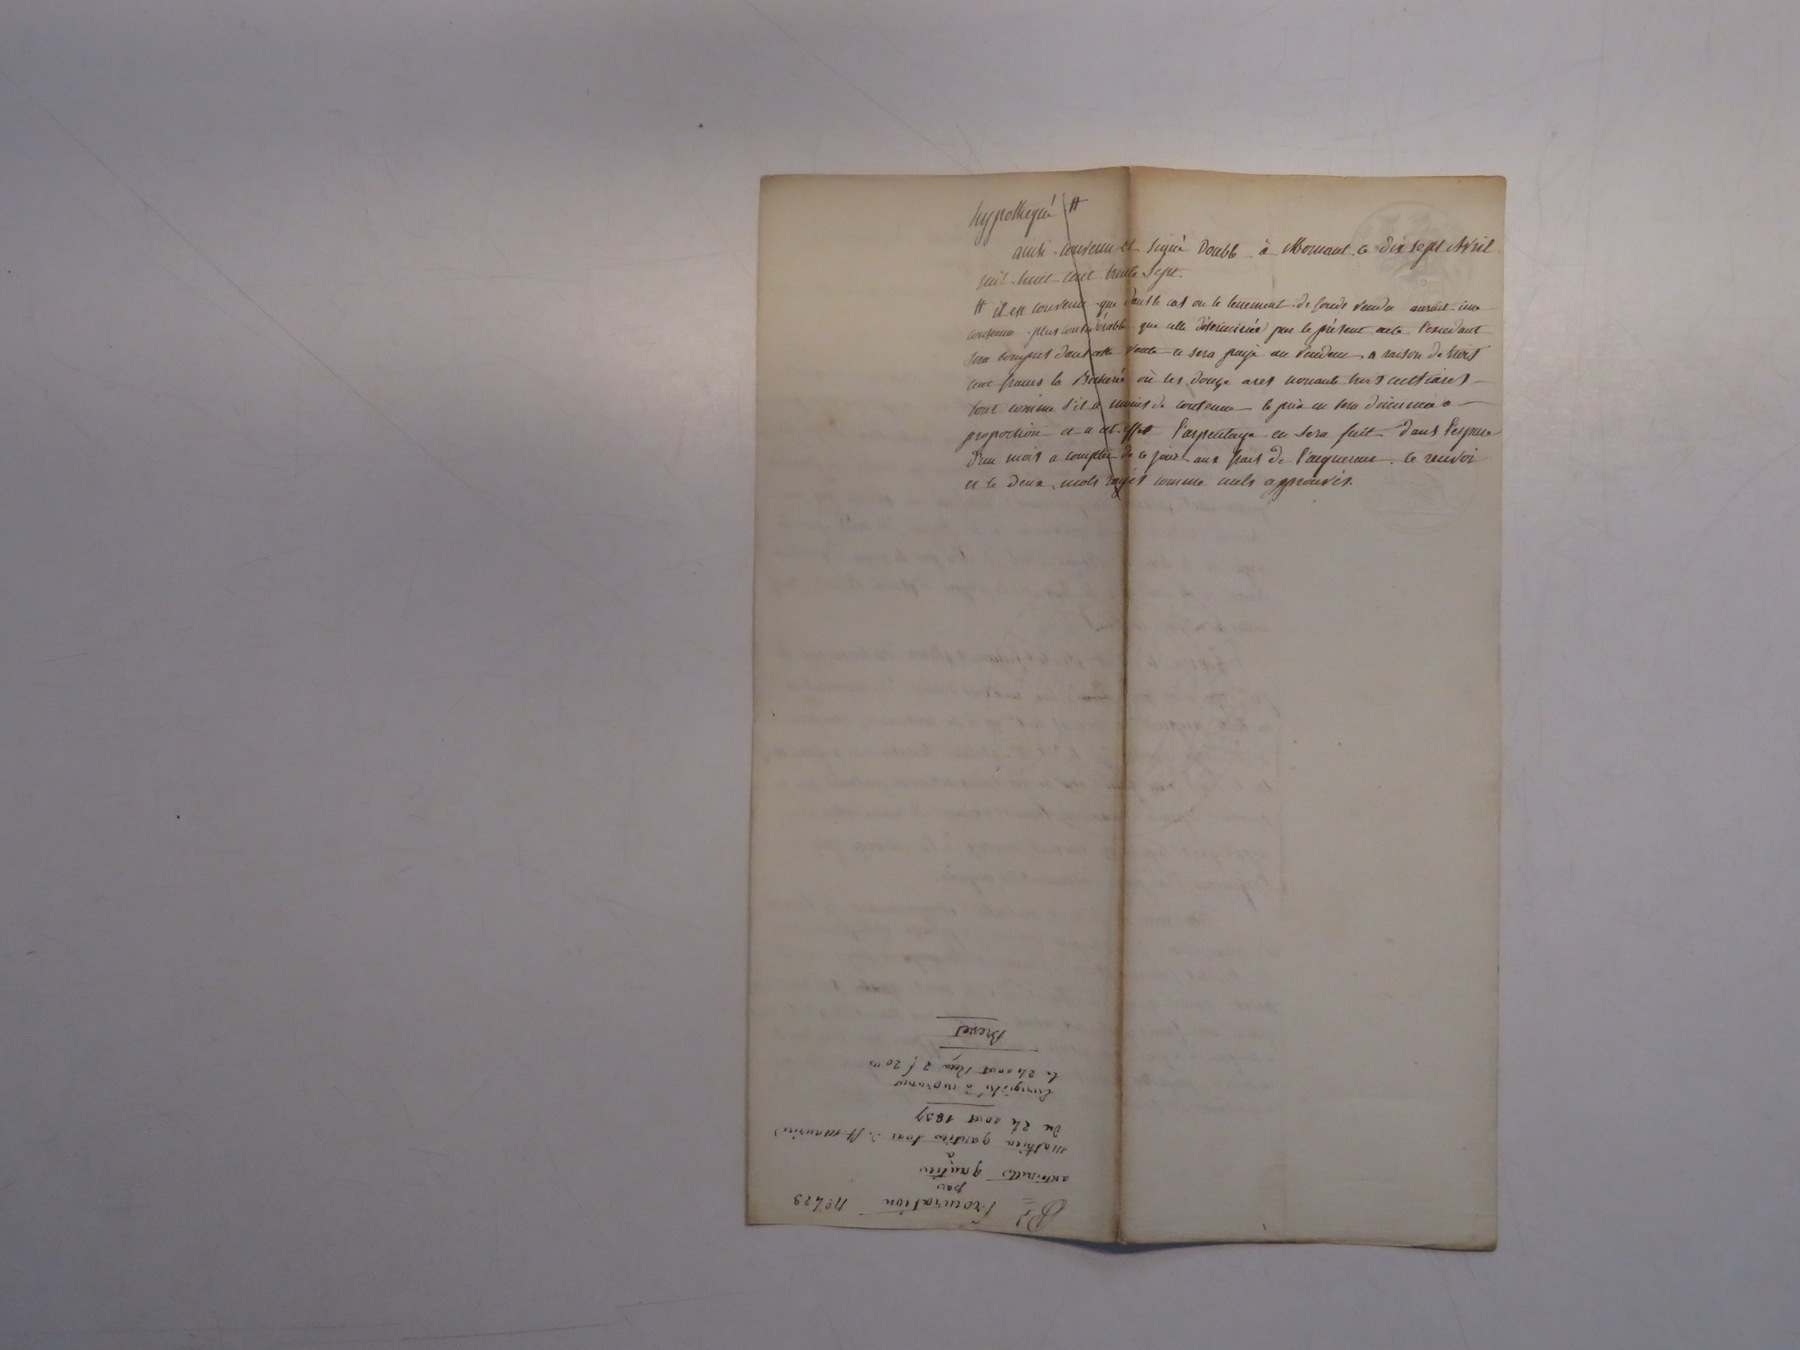 hypothéqué #
ainsi convenu et signé double à Mornant ce dix sept Avril
mil huit cent trente sept.
# il est convenu que dans le cas ou le tenement de fonds vendu aurait une
contenue plus considérable que celle déterminée par le présent acte l'excédant
sera compris dans cette vente et sera payé au vendeur a raison de trois
cent francs la Bicherée où les douze ares nonante trois centiares
tout comme s'il a moins de contenue le prix en sera diminué a
proportion et a cet effet l'arpentage en sera fait dans l'espace
d'un mois a compter de ce jour aux frais de l'acquereur. ce renvoi
et le deux mots rayés comme nuls approuvés.
Procuration N° 428
par
antoinette gautier
a
mathieu gautier
du 24 aout 1837
Enregistré a mornant
le 24 aout Reçu 2 f 20
Brevet